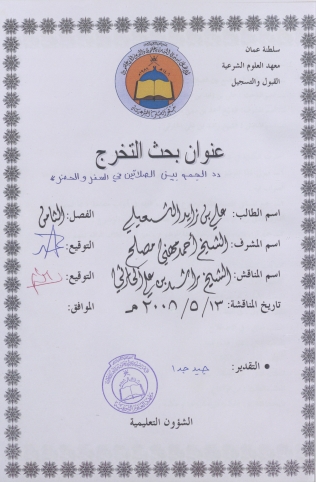 سلطنة عمان
معهد العلوم الشرعية
القبول والتسجيل
عنوان بحث التخرج
(( الجمع بين الصلاتين في السفر والحضر ))
اسم الطالب: علي بن زايد الشعيلي الفصل: الثامن
اسم المشرف: الشيخ أحمد مهني مصلح التوقيع:
اسم المناقش: الشيخ راشد بن علي الحارثي التوقيع:
تاريخ المناقشة: ١٣ / ٥ / ٢٠٠٨ م الموافق:
• التقدير: جيد جدا
الشؤون التعليمية